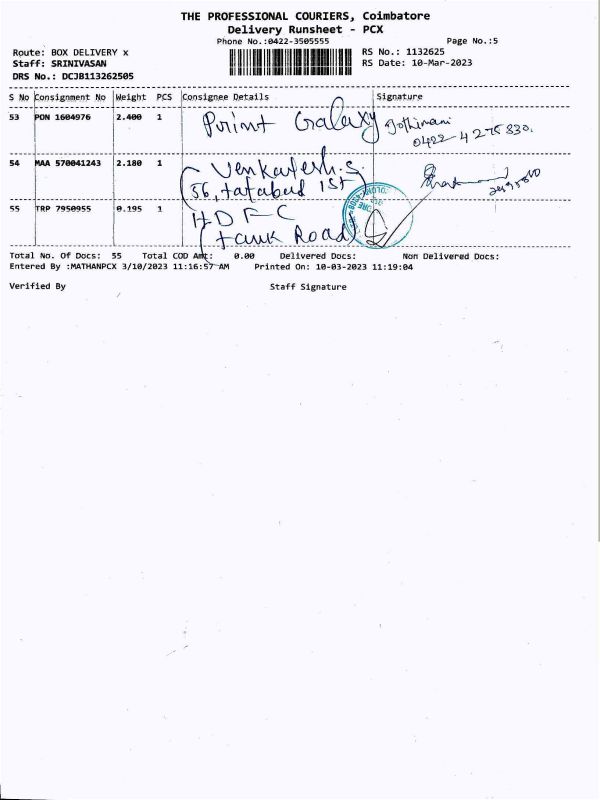 THE PROFESSIONAL COURIERS, Coimbatore
Delivery Runsheet - PCX
Phone No.:0422-3505555 Page No.:5
Route: BOX DELIVERY x RS No.: 1132625
Staff: SRINIVASAN RS Date: 10-Mar-2023
DRS No.: DCJB113262505
S No Consignment No Weight PCS Consignee Details Signature
53 PON 1604976 2.400 1 Print Galaxy Jothimani
0422-4275830.
54 MAA 570041243 2.180 1 Venkatesh.S
56, tatabad 1st
55 TRP 7950955 0.195 1 HDFC
tank Road
Total No. Of Docs: 55 Total COD Amt: 0.00 Delivered Docs: Non Delivered Docs:
Entered By :MATHANPCX 3/10/2023 11:16:57 AM Printed On: 10-03-2023 11:19:04
Verified By Staff Signature